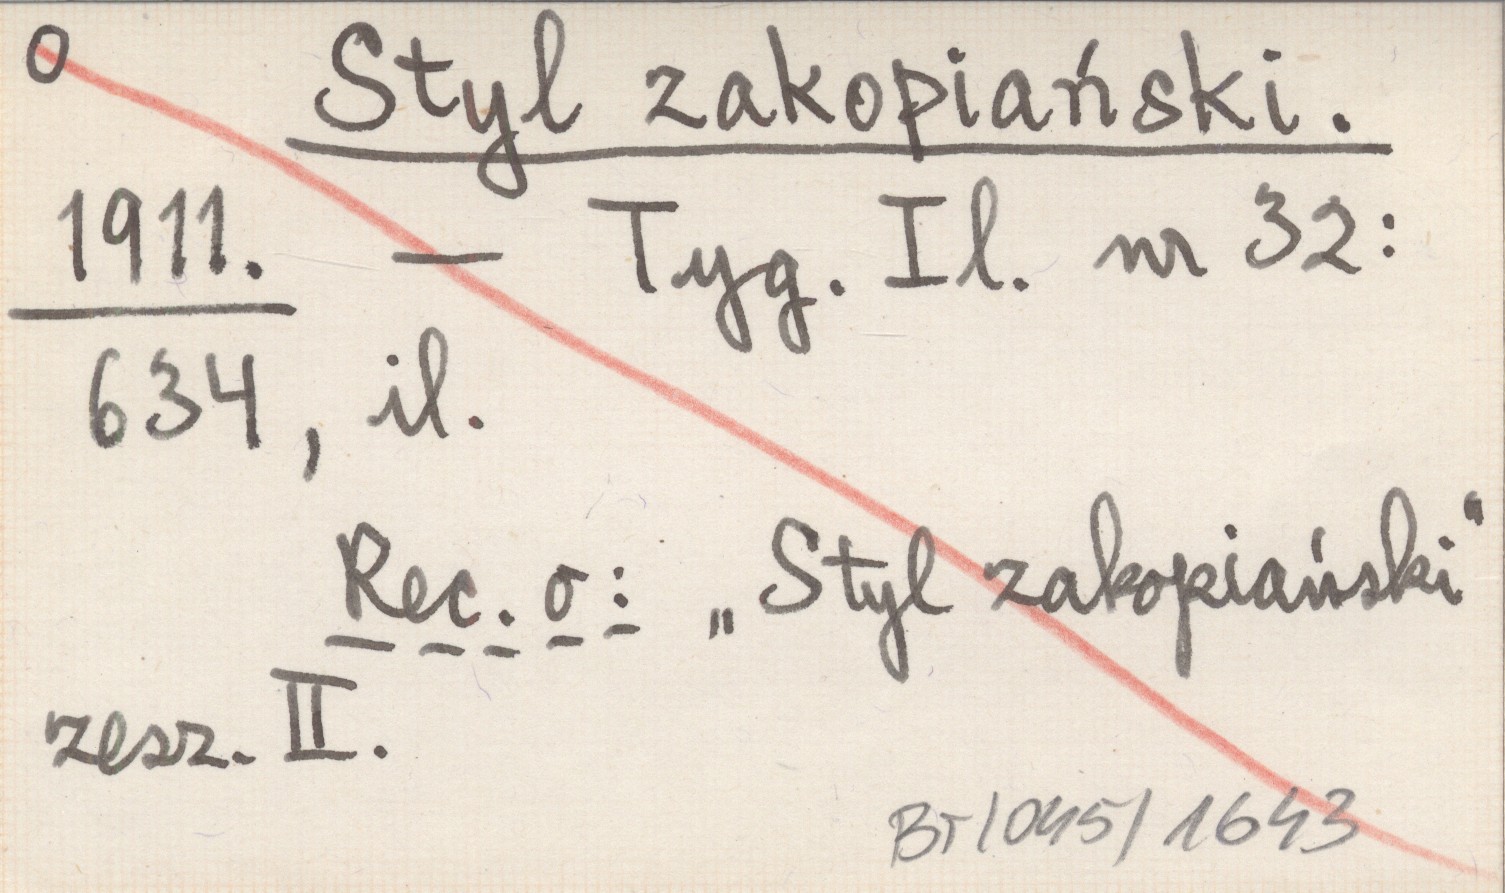 O Styl zakopiański.
1911. — Tyg. Il. nr 32:
634, il.
Rec. o: „Styl zakopiański“
zesz. II.
BT/045/1643